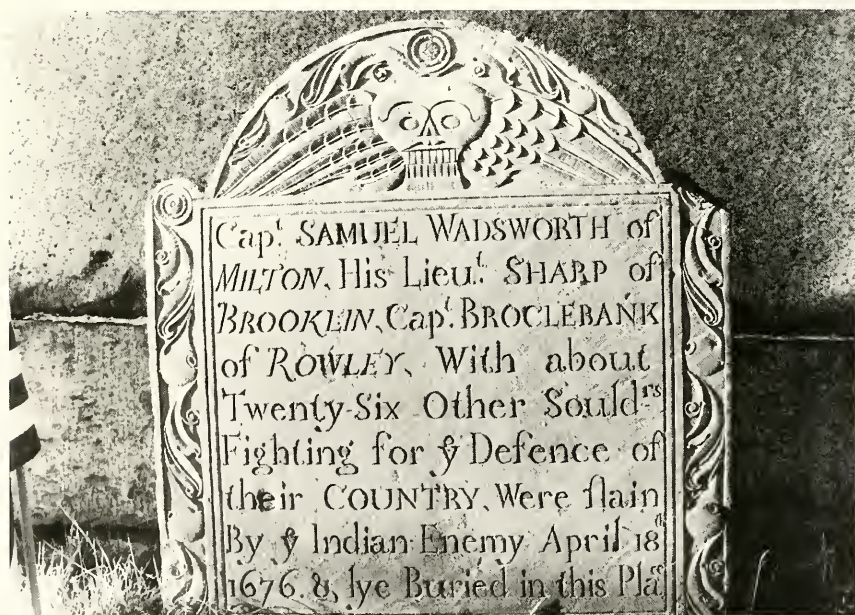 Capᵗ. SAMUEL WADSWORTH of
MILTON, His Lieuᵗ. SHARP of
BROOKLIN, Capᵗ. BROCLEBANK
of ROWLEY, With about
Twenty-Six Other Souldʳˢ
Fighting for yᵉ Defence of
their COUNTRY, Were ſlain
By yᵉ Indian Enemy April 18ᵗʰ
1676. &, lye Buried in this Plaᶜᵉ